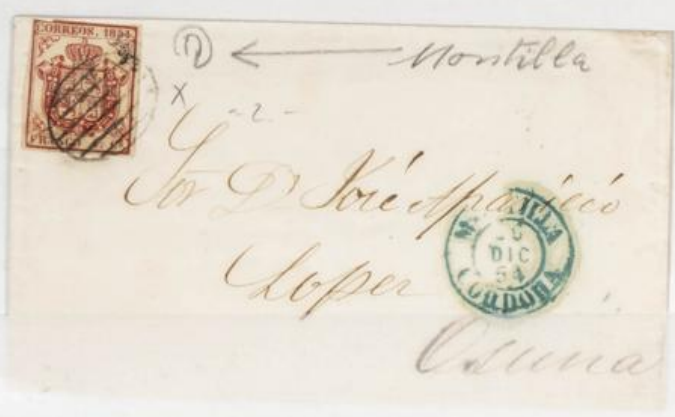 CORREOS. 1854
Montilla
X
- 2 -
Sor Dn José Aparicio
Lopez
MONTILLA
DIC
54
CORDOBA
Osuna